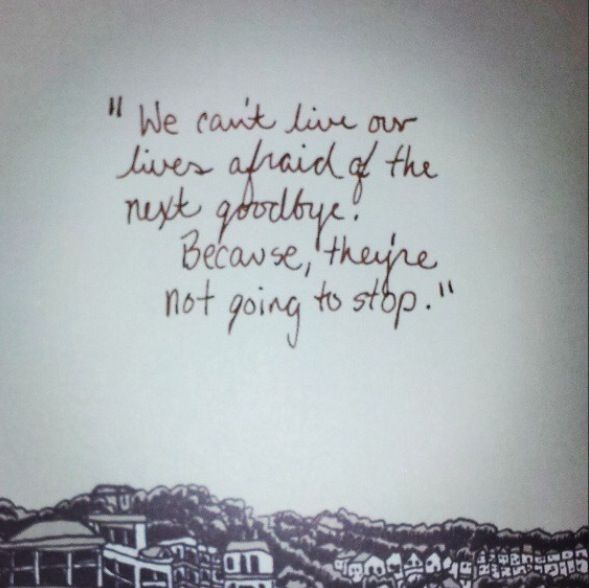 "We can't live our
lives afraid of the
next goodbye.
Because, they're
not going to stop."